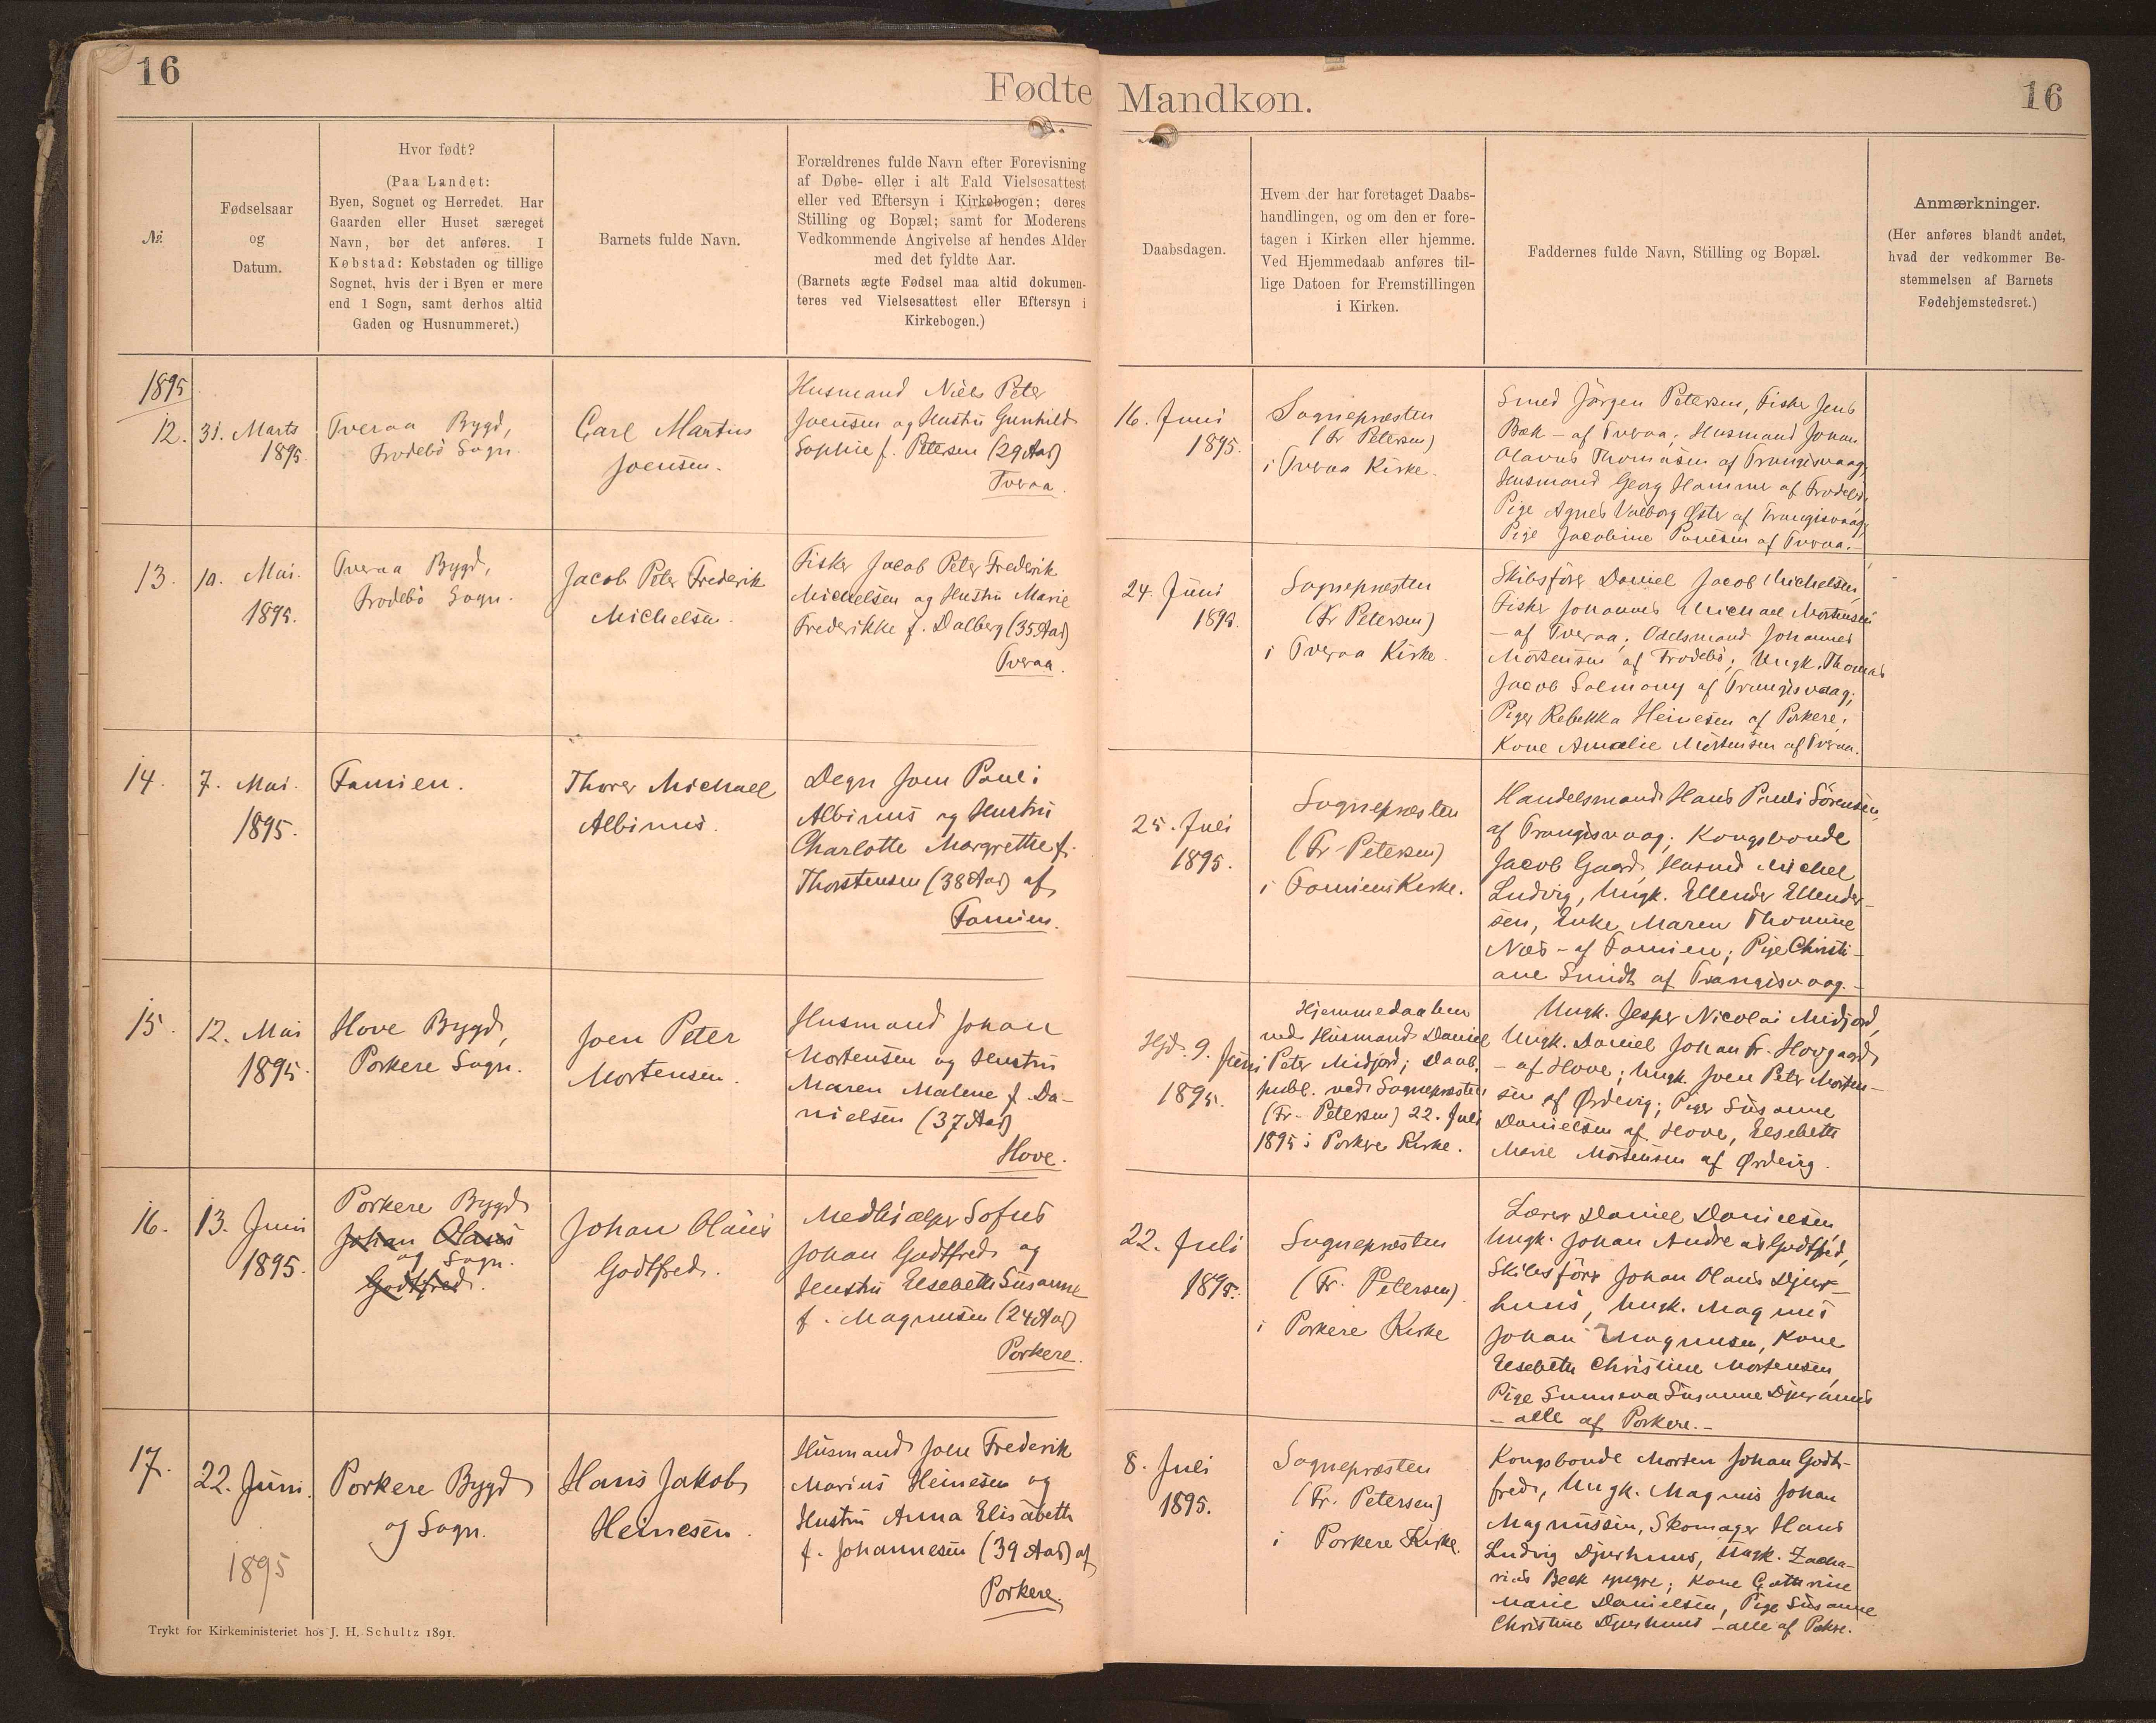 16
Fødte
Mandkøn.
16
№.
Fødselsaar
og
Datum.
Hvor født?
(Paa Landet:
Byen, Sognet og Herredet. Har
Gaarden eller Huset særeget
Navn, bør det anføres. I
Købstad: Købstaden og tillige
Sognet, hvis der i Byen er mere
end 1 Sogn, samt derhos altid
Gaden og Husnummeret.)
Barnets fulde Navn.
Forældrenes fulde Navn efter Forevisning
af Døbe- eller i alt Fald Vielsesattest
eller ved Eftersyn i Kirkebogen; deres
Stilling og Bopæl; samt for Moderens
Vedkommende Angivelse af hendes Alder
med det fyldte Aar.
(Barnets ægte Fødsel maa altid dokumen-
teres ved Vielsesattest eller Eftersyn i
Kirkebogen.)
Daabsdagen.
Hvem der har foretaget Daabs-
handlingen, og om den er fore-
tagen i Kirken eller hjemme.
Ved Hjemmedaab anføres til-
lige Datoen for Fremstillingen
i Kirken.
Faddernes fulde Navn, Stilling og Bopæl.
Anmærkninger.
(Her anføres blandt andet,
hvad der vedkommer Be-
stemmelsen af Barnets
Fødehjemstedsret.)
1895
12.
31. Marts
1895.
Tveraa Bygd,
Frodebö Sogn.
Carl Martus
Joensen.
Husmand Niels Peter
Joensen og Hustru Gunhild
Sophie f. Petersen (29 Aar)
Tveraa.
16. Juni
1895.
Sognepræsten
(Fr Petersen)
i Tveraa Kirke.
Smed Jörgen Petersen, Fisker Jens
Bæk - af Tveraa; Husmand Johan
Olavus Thomasen af Trangisvaag,
Husmand Georg Hammer af Frodebö,
Pige Agnes Valborg Øster af Trangisvaag,
Pige Jacobine Poulsen af Tveraa.
13.
10. Mai.
1895.
Tveraa Bygd,
Frodebö Sogn.
Jacob Peter Frederik
Michelsen.
Fisker Jacob Peter Frederik
Michelsen og Hustru Marie
Frederikke f. Dalberg (35 Aar)
Tveraa.
24. Juni
1895.
Sognepræsten
(Fr Petersen)
i Tveraa Kirke.
Skibsförer Daniel Jacob Michelsen,
Fisker Johannes Michael Mortensen
- af Tveraa; Odelsmand Johannes
Mortensen af Frodebö; Ungk. Thomas
Jacob Salmony af Trangisvaag;
Piger Rebekka Heinesen af Porkere,
Kone Amalie Mortensen af Tveraa.
14.
7. Mai.
1895.
Famien.
Thorer Michael
Albinus.
Degn Joen Pauli
Albinus og Hustru
Charlotte Margrethe f.
Thorstensen (38 Aar) af
Famien.
25. Juli
1895.
Sognepræsten
(Fr. Petersen)
i Famiens Kirke.
Handelsmand Hans Pauli Sörensen,
af Trangisvaag; Kongsbonde
Jacob Gaard, Husmd Michel
Ludvig, Ungk. Ellender Ellender-
sen, Enke Maren Thomine
Næs - af Famien; Pige Christi-
ane Smidt af Trangisvaag.-
15.
12. Mai
1895.
Hove Bygd,
Porkere Sogn.
Joen Peter
Mortensen.
Husmand Johan
Mortensen og Hustru
Maren Malene f. Da-
nielsen (37 Aar)
Hove.
Hjd. 9. Juni
1895.
Hjemmedaaben
ved Husmand Daniel
Peter Midjord; Daab.
publ. ved Sognepræsten
(Fr. Petersen) 22. Juli
1895 i Porkere Kirke.
Ungk. Jesper Nicolai Midjord,
Ungk. Daniel Johan Fr. Hovgaard
- af Hove; Ungk. Joen Peter Morten-
sen af Ørdevig; Piger Susanne
Danielsen af Hove, Elsebeth
Marie Mortensen af Ørdevig.
16.
13. Juni
1895.
Porkere Bygd
Johan Olaus
og Sogn.
Godtfred.
Johan Olaus
Godtfred.
Medhjælper Sofus
Johan Godtfred og
Hustru Elsebeth Susanne
f. Magnusen (24 Aar)
Porkere.
22. Juli
1895.
Sognepræsten
(Fr. Petersen)
i Porkere Kirke
Lærer Daniel Danielsen,
Ungk. Johan Andreas Godtfred,
Skibsförer Johan Olaus Djur-
huus, Ungk. Magnus
Johan Magnusen, Kone
Elsebeth Christine Mortensen,
Pige Sunneva Susanne Djurhuus
- alle af Porkere.-
17.
22. Juni.
1895
Porkere Bygd
og Sogn.
Hans Jakob
Heinesen.
Husmand Joen Frederik
Marius Heinesen og
Hustru Anna Elisabeth
f. Johannesen (39 Aar) af
Porkere.
8. Juli
1895.
Sognepræsten
(Fr. Petersen)
i Porkere Kirke.
Kongsbonde Morten Johan Godt-
fred, Ungk. Magnus Johan
Magnussen, Skomager Hans
Ludvig Djurhuus, Ungk. Zacha-
rias Beck yngre; Kone Cathrine
Marie Danielsen, Pige Susanne
Christine Djurhuus - alle af Porkere.
Trykt for Kirkeministeriet hos J. H. Schultz 1891.